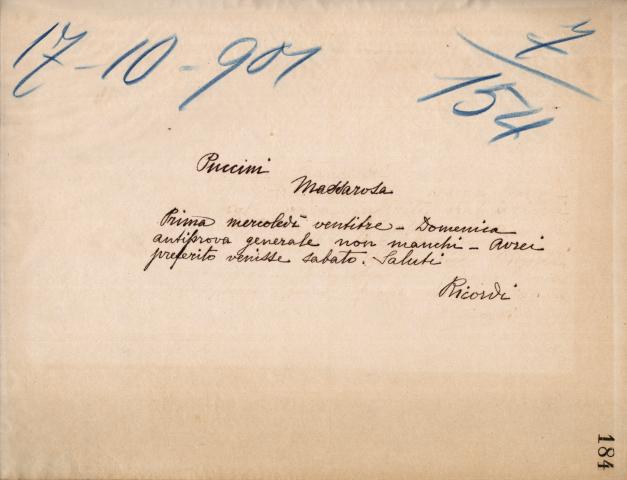 17-10-901
7/154
Puccini
Massarosa
Prima mercoledì ventitre - Domenica
antiprova generale non manchi - Avrei
preferito venisse sabato. Saluti
Ricordi
184